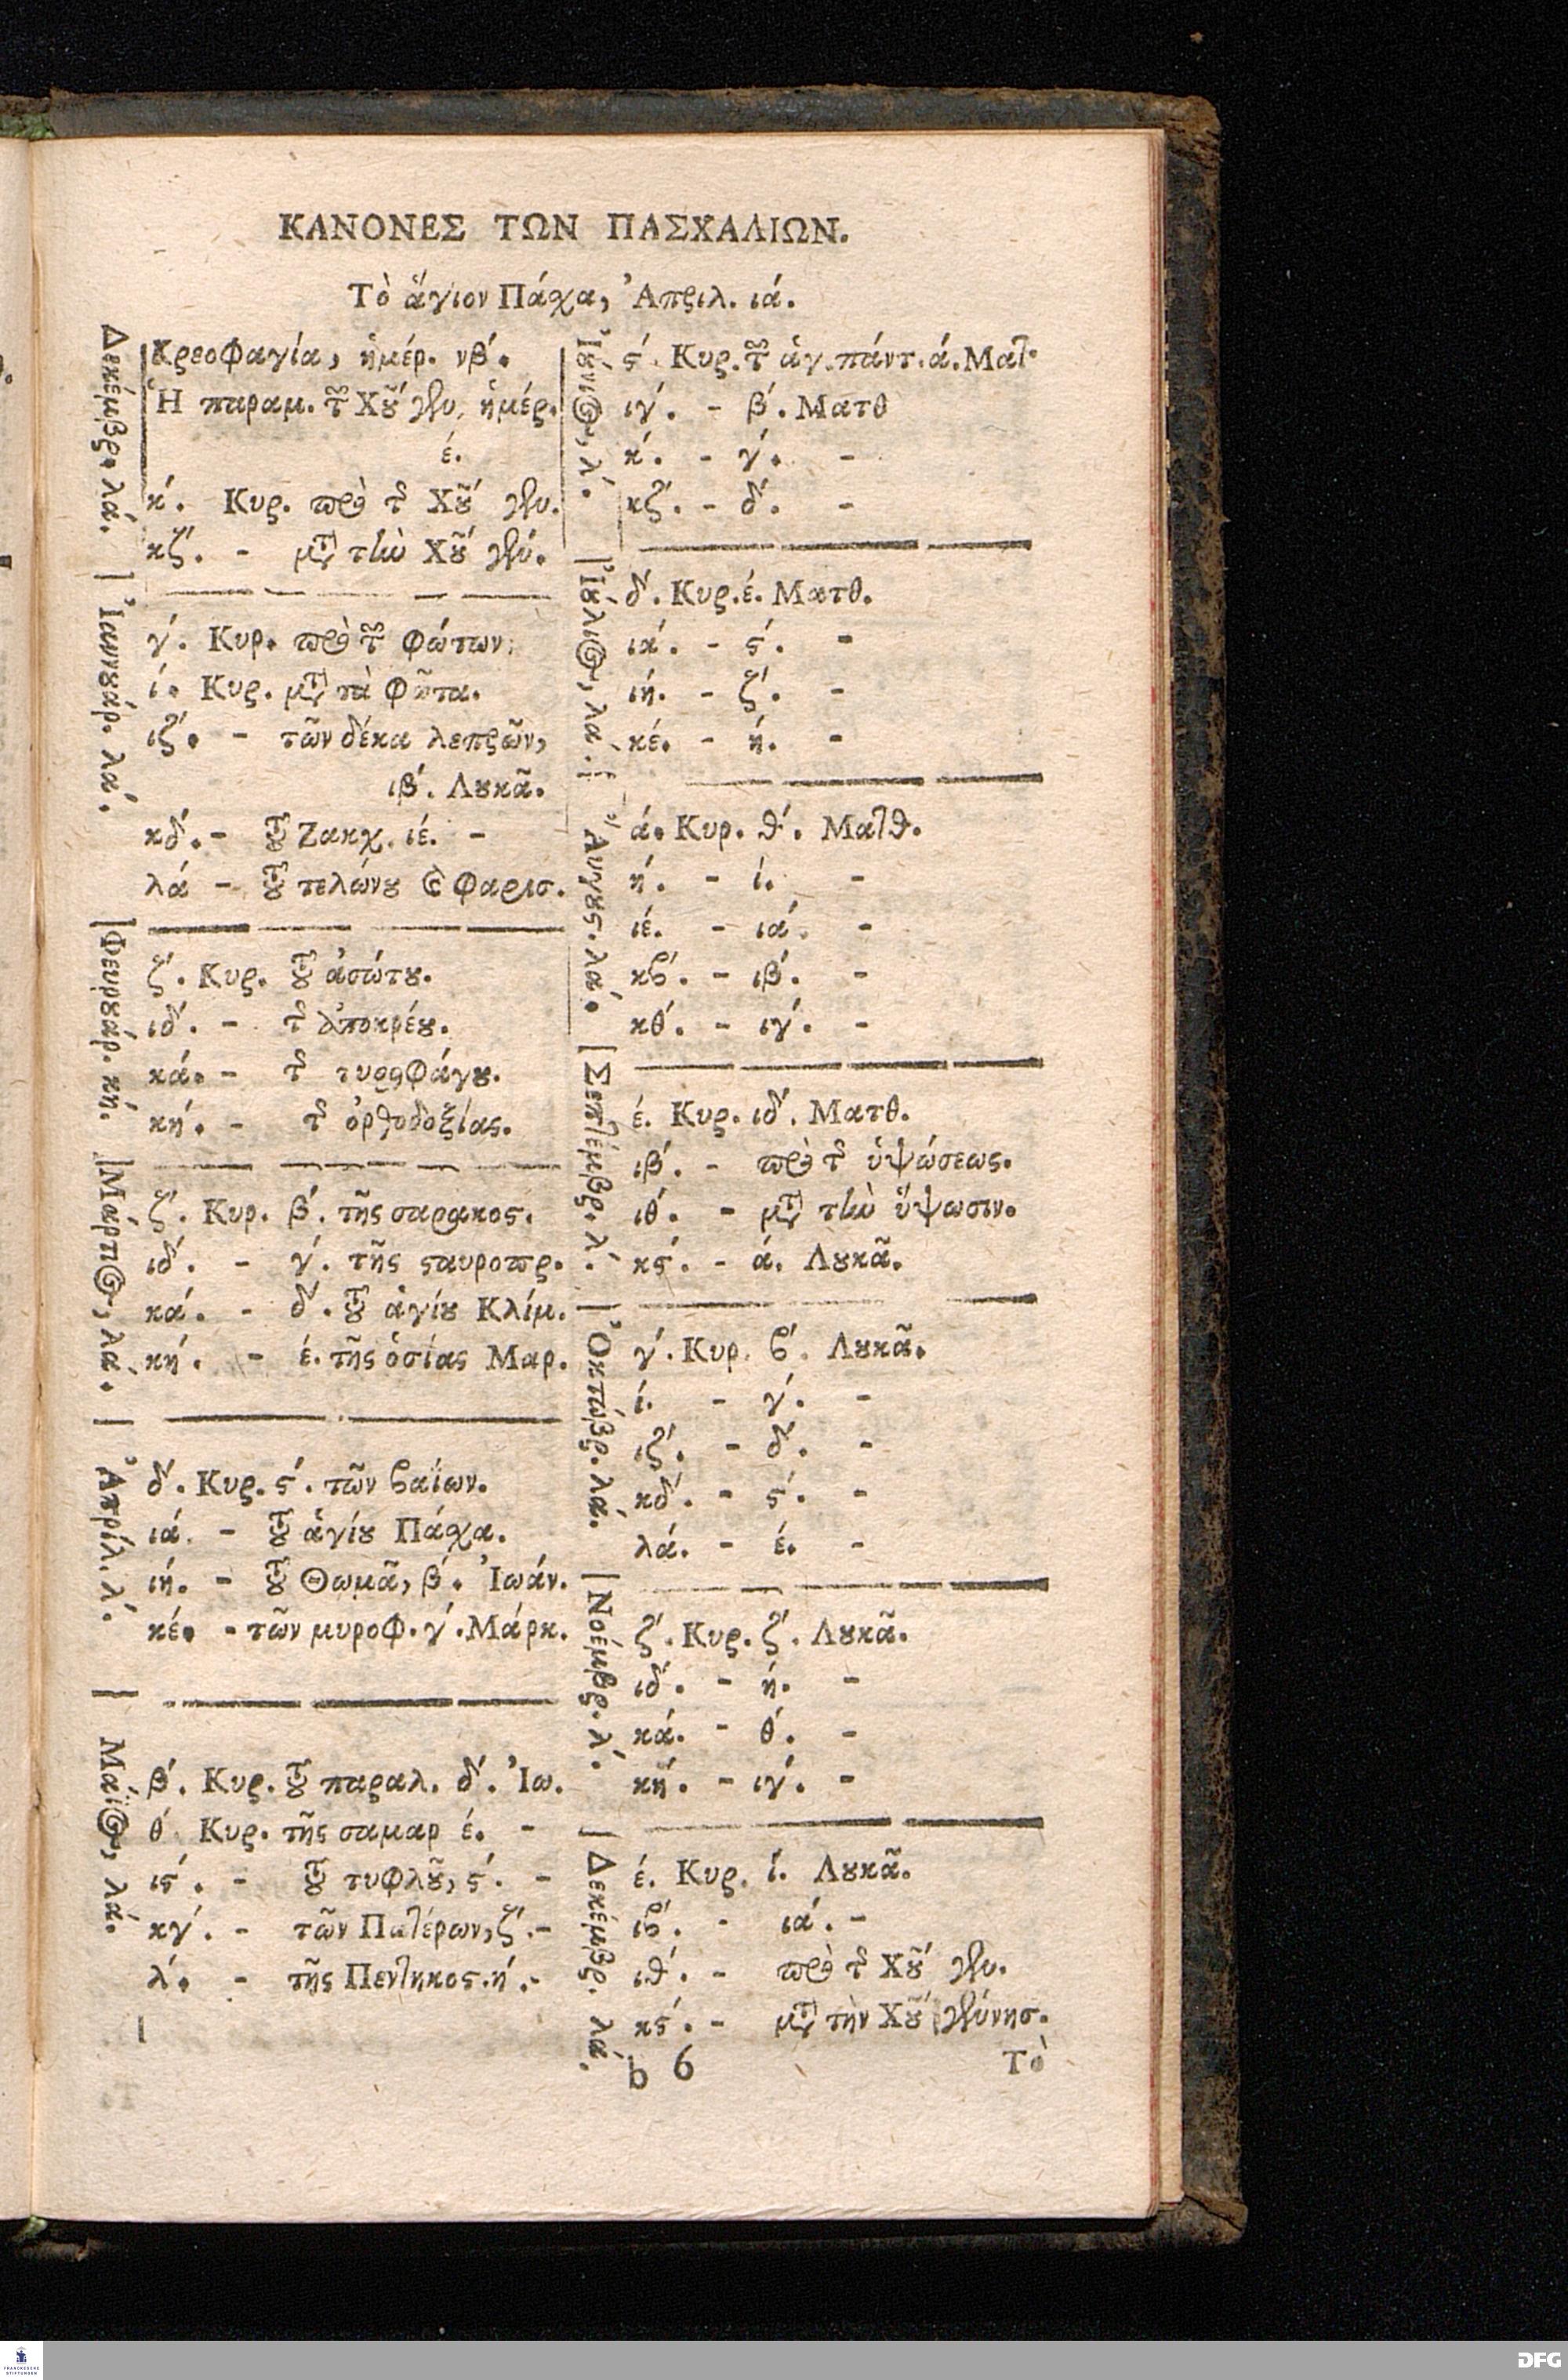 ΚΑΝΟΝΕΣ ΤΩΝ ΠΑΣΧΑΛΙΩΝ.
Τὸ ἅγιον Πάχα, Ἀπριλ. ιά.
Δεκέμβρ. λά.
Κρεοφαγία, ἡμέρ. νβ´.
Ἡ παραμ. τῶν Χȣ͂ γεν. ἡμέρ.
έ.
κ´. Κυρ. πρὸ τῆς Χȣ͂ γεν.
κζ´. - μετὰ τὴν Χȣ͂ γεν.
Ἰαννȣάρ. λά.
γ´. Κυρ. πρὸ τῶν Φώτων.
ί. Κυρ. μετὰ τὰ Φῶτα.
ιζ´. - τῶν δέκα λεπρῶν,
ιβ´. Λȣκᾶ.
κδ´. - τȣ͂ Ζακχ. ιέ. -
λά - τȣ͂ τελώνȣ καὶ Φαρισ.
Φευρȣάρ. κή.
ζ´. Κυρ. τȣ͂ ἀσώτȣ.
ιδ´. - τῆς ἀποκρέȣ.
κά. - τῆς τυροφάγȣ.
κή. - τῆς ὀρθοδοξίας.
Μάρτιος, λά.
ζ´. Κυρ. β´. τῆς σαρακος.
ιδ´. - γ´. τῆς ϛαυροπρ.
κά. - δ´. τȣ͂ ἁγίȣ Κλίμ.
κή. - έ. τῆς ὁσίας Μαρ.
Ἀπρίλ. λ´.
δ´. Κυρ. ϛ´. τῶν βαΐων.
ιά. - τȣ͂ ἁγίȣ Πάχα.
ιή. - τȣ͂ Θωμᾶ, β´. Ἰωάν.
κέ. - τῶν μυροφ. γ´. Μάρκ.
Μάϊος, λά.
β´. Κυρ. τȣ͂ παραλ. δ´. Ἰω.
θ´ Κυρ. τῆς σαμαρ έ. -
ιϛ´. - τȣ͂ τυφλȣ͂, ϛ´. -
κγ´. - τῶν Πατέρων, ζ´. -
λ´. - τῆς Πεντηκοϛ. ή. -
Ἰȣ́νιος, λ´.
ϛ´. Κυρ. τῶν ἁγ. πάντ. ά. Ματ.
ιγ´. - β´. Ματθ
κ´. - γ´. -
κζ´. - δ´. -
Ἰȣ́λιος, λα.
δ´. Κυρ. έ. Ματθ.
ιά. - ϛ´. -
ιή. - ζ´. -
κέ. - ή. -
Ἄυγȣϛ. λά.
ά. Κυρ. θ´. Ματθ.
ή. - ί. -
ιέ. - ιά. -
κβ´. - ιβ´. -
κθ´. - ιγ´. -
Σεπτέμβρ. λ´.
έ. Κυρ. ιδ´. Ματθ.
ιβ´. - πρὸ τῆς ὑψώσεως.
ιθ´. - μετὰ τὴν ὕψωσιν.
κϛ´. - ά. Λȣκᾶ.
Ὀκτώβρ. λά.
γ´. Κυρ. β´. Λȣκᾶ.
ί. - γ´. -
ιζ´. - δ´. -
κδ´. - ϛ´. -
λά. - έ. -
Νοέμβρ. λ´.
ζ´. Κυρ. ζ´. Λȣκᾶ.
ιδ´. - ή. -
κά. - θ´. -
κή. - ιγ´. -
Δεκέμβρ. λά.
έ. Κυρ. ί. Λȣκᾶ.
ιβ´. - ιά. -
ιθ´. - πρὸ τῆς Χȣ͂ γεν.
κϛ´. - μετὰ τὴν Χȣ͂ γεννησ.
b 6
Τὸ
FRANCKESCHE
STIFTUNGEN
DFG